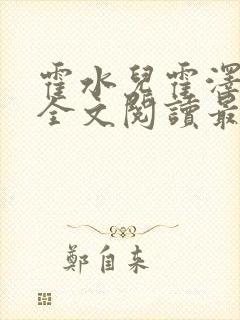 霍水兒霍澤
全文閱讀最
鄭自來